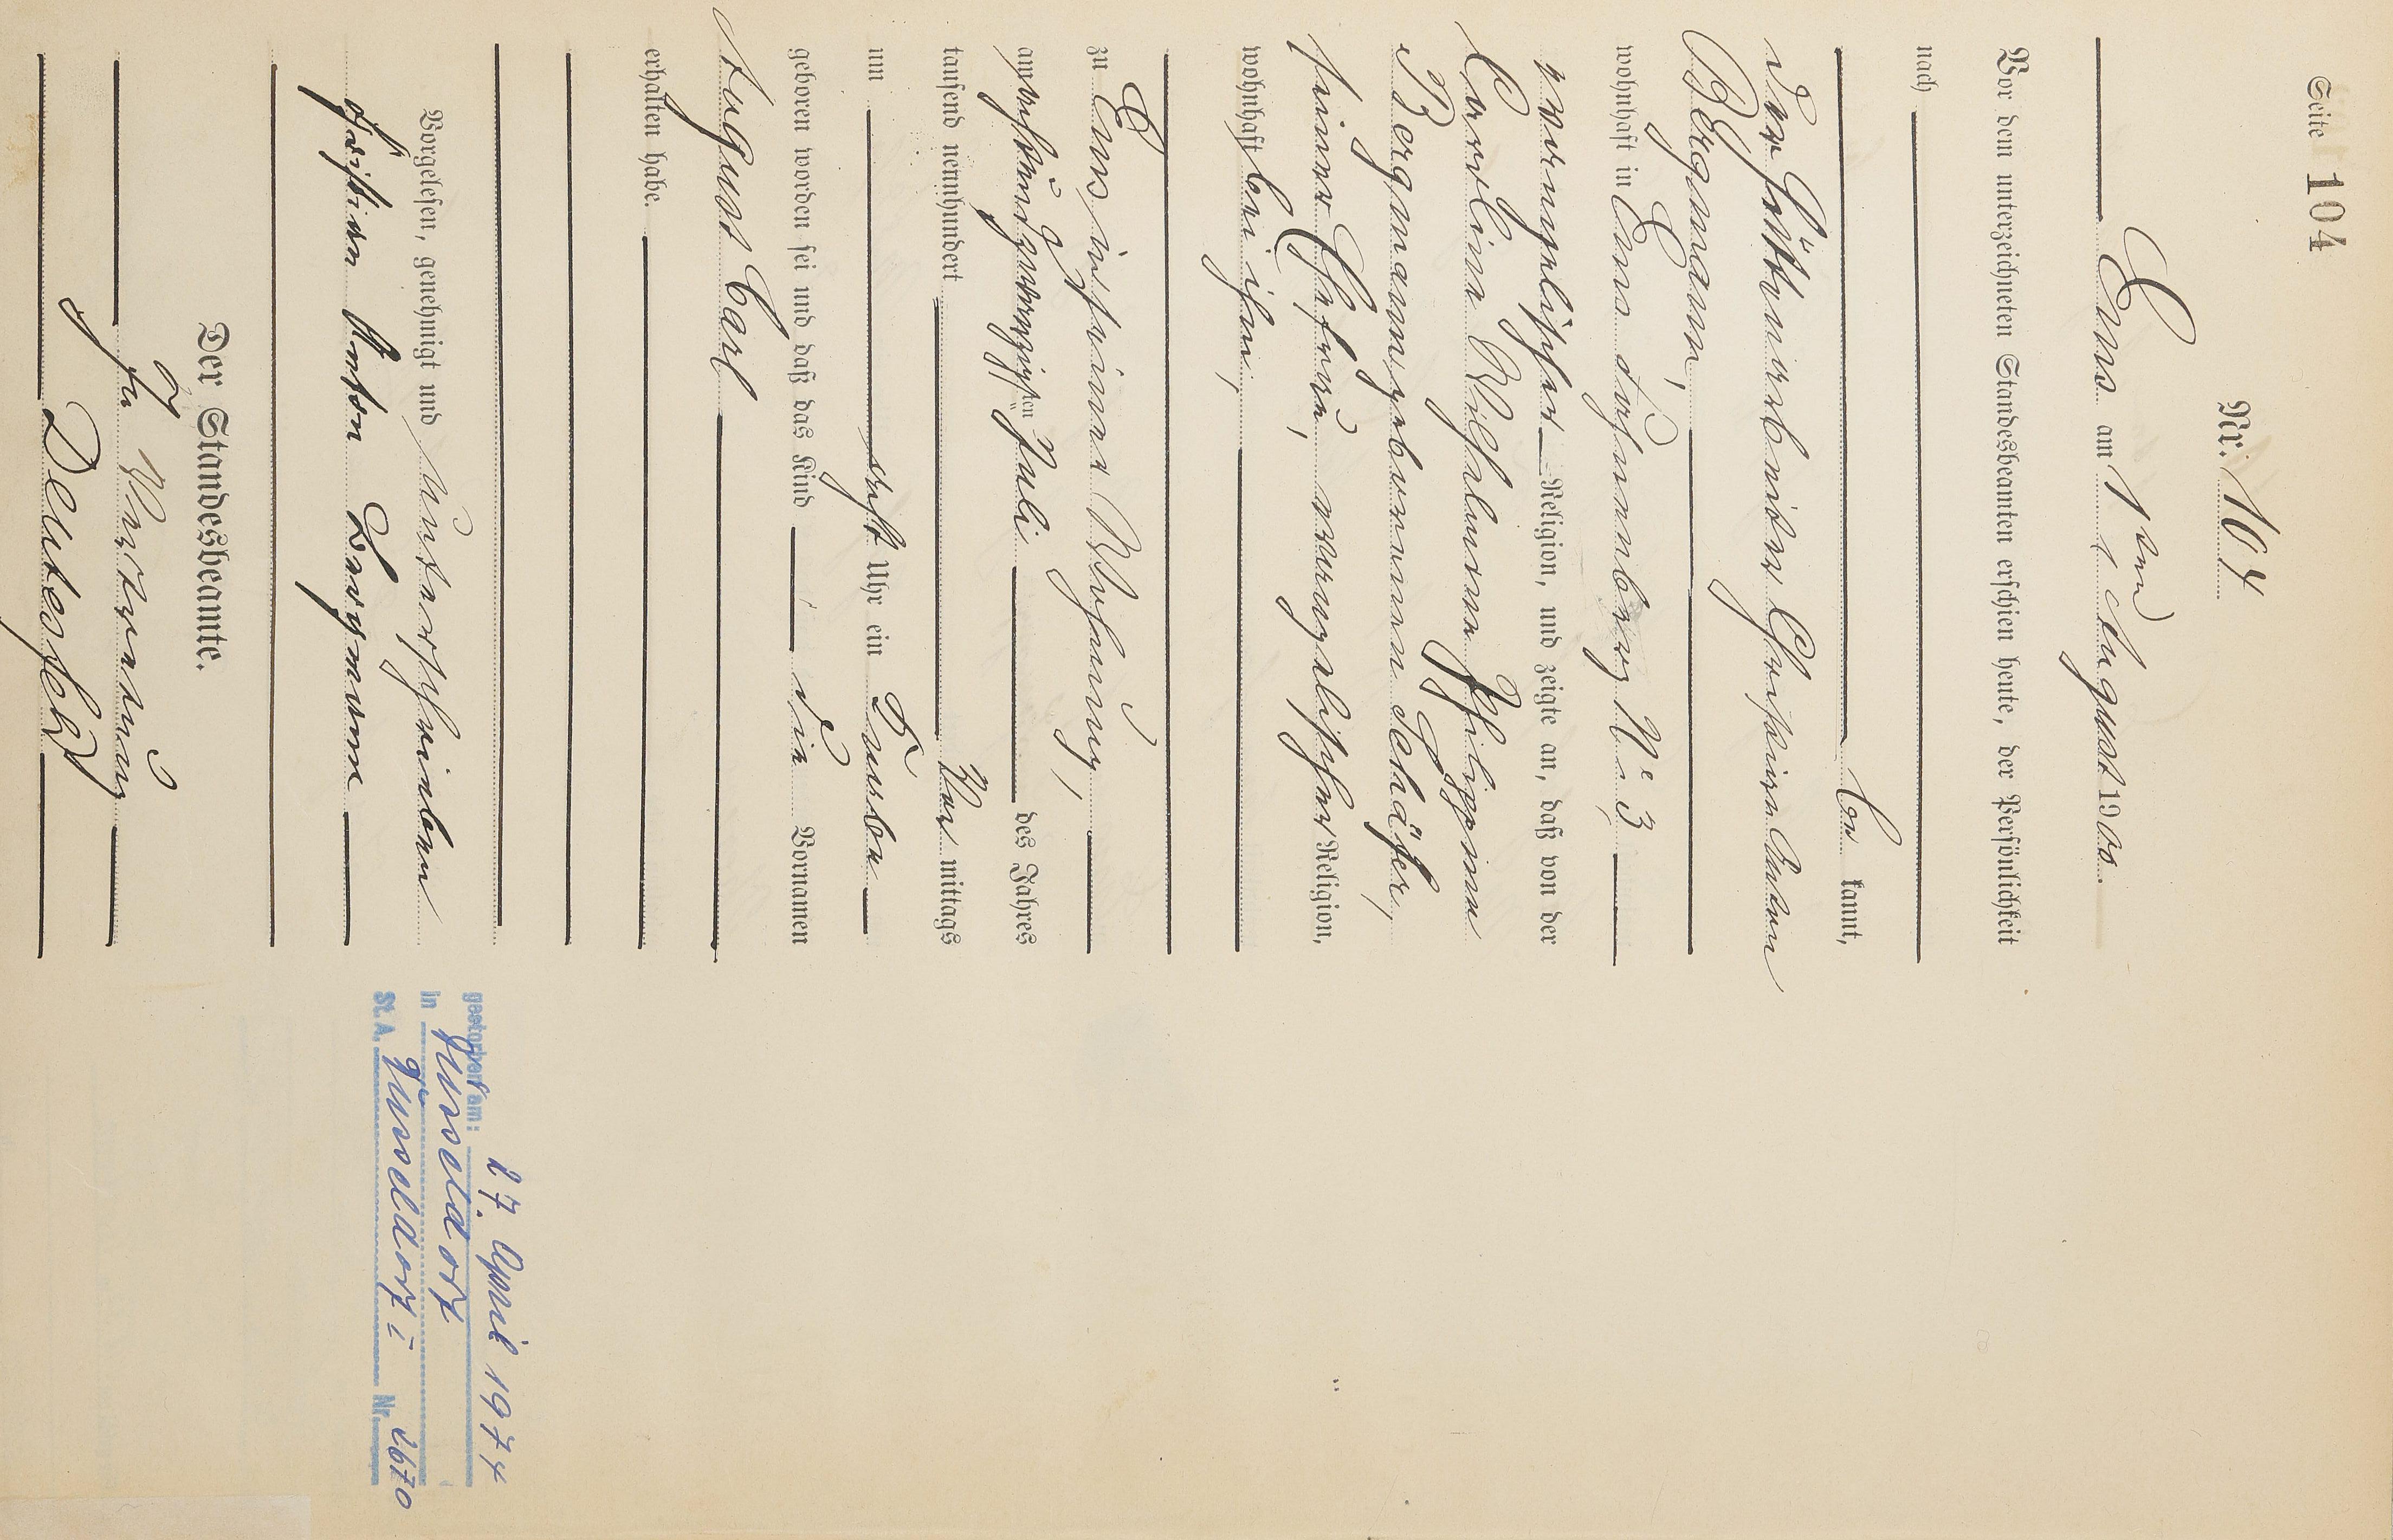 Seite 104
Nr. 104
Ems am 1ten August 1900.
Vor dem unterzeichneten Standesbeamten erschien heute, der Persönlichkeit
nach
be kannt,
der Hüttenarbeiter Christian Anton
Bergmann,
wohnhaft in Ems Nr 3
evangelischer Religion, und zeigte an, daß von der
Caroline Wilhelmine Philippine
Bergmann geborenen Schäfer,
seiner Ehefrau, evangelischer Religion,
wohnhaft bei ihm,
zu Ems in seiner Wohnung,
am Juli des Jahres
tausend neunhundert Vor mittags
um acht Uhr ein Knabe
geboren worden sei und daß das Kind die Vornamen
August Carl
erhalten habe.
Vorgelesen, genehmigt und unterschrieben
Christian Anton Bergmann
Der Standesbeamte.
In Vertretung
gestorben am: 27. April 1974
in Düsseldorf
St. A. Düsseldorf Nr. 2670